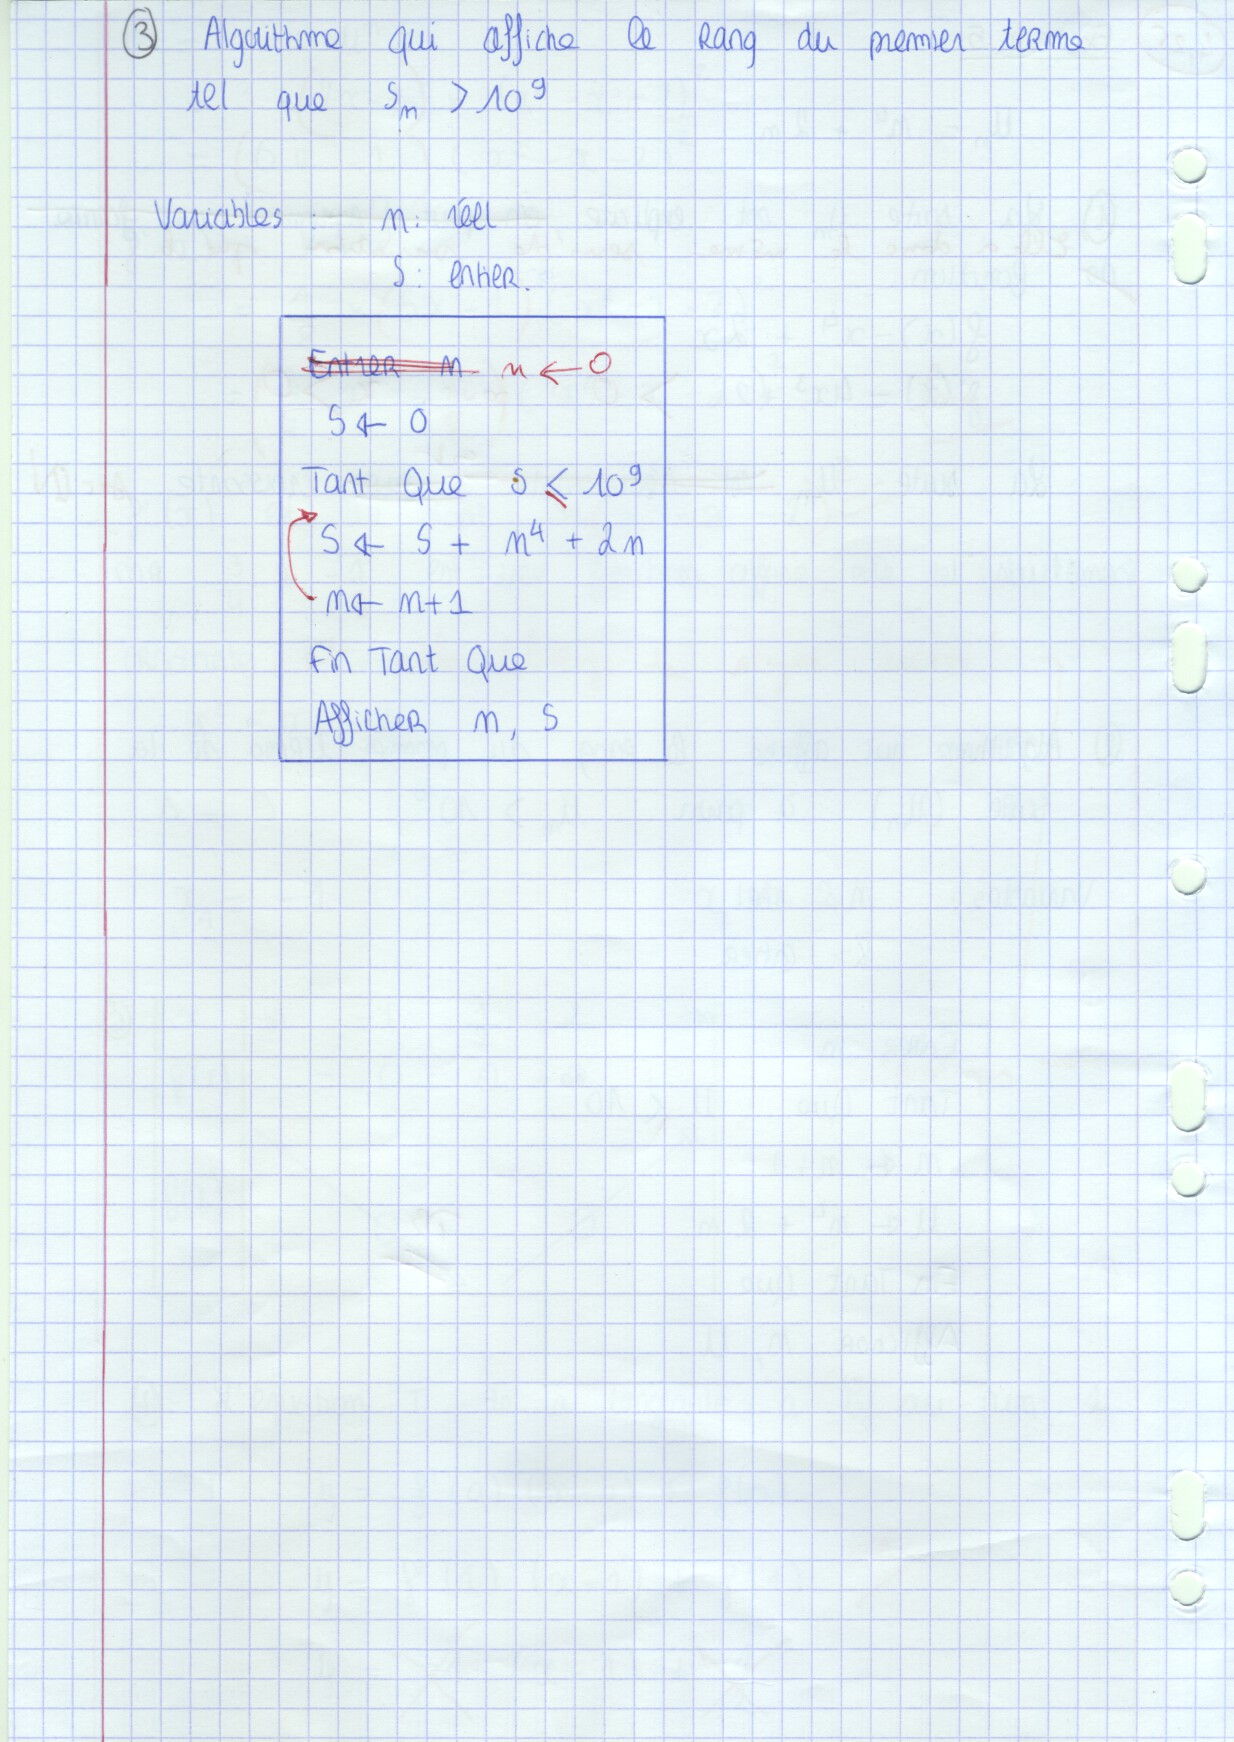 ③ Algorithme qui affiche le rang du premier terme
tel que Sn > 10⁹
Variables : n : réel
S : entier.
Entrer n n ← 0
S ← 0
Tant Que S ≤ 10⁹
S ← S + n⁴ + 2n
n ← n+1
Fin Tant Que
Afficher n, S